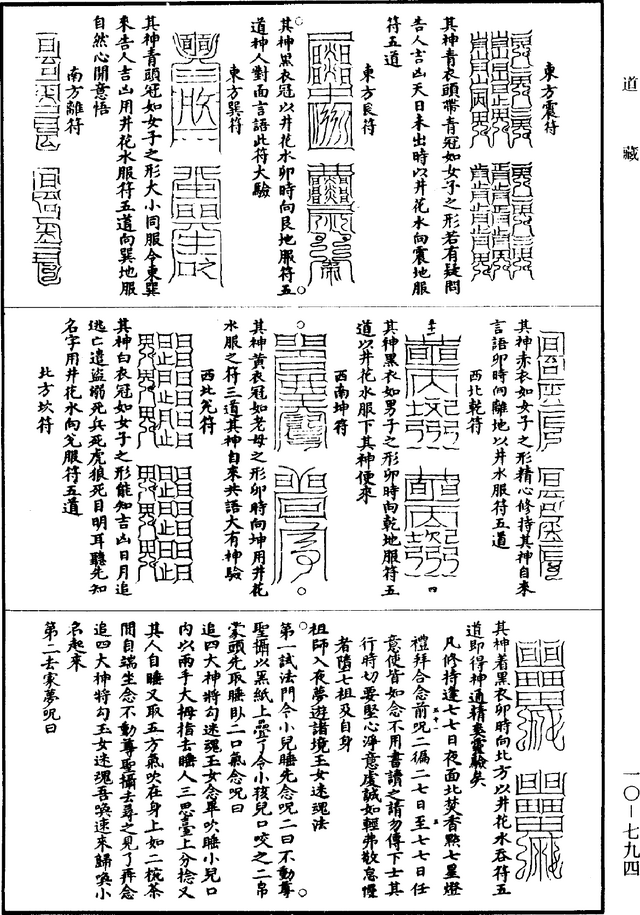 道藏
東方震符
其神青衣頭帶青冠如女子之形若有疑問
告人吉凶天日未出時以井花水向震地服
符五道
東方艮符
其神黑衣冠以井花水卯時向艮地服符五
道神人對面言語此符大驗
東方巽符
其神青頭冠如女子之形大小同服令東巽
來告人吉凶用井花水服符五道向巽地服
自然心開意悟
南方離符
其神赤衣如女子之形精心修持其神自來
言語卯時向離地以井水服符五道
西北乾符
其神黑衣如男子之形卯時向乾地服符五
道以井花水服下其神便來
西南坤符
其神黃衣冠如老母之形卯時向坤用井花
水服之符三道其神自來共語大有神驗
西北兌符
其神白衣冠如女子之形能知吉凶日月追
逃亡遺盜溺死兵死虎狼死目明耳聽先知
名字用井花水向兌服符五道
北方坎符
其神着黑衣卯時向北方以井花水吞符五
道即得神通精爽靈驗矣
凡修持逢七七日夜面北焚香點七星燈
禮拜合念前呪二徧二七日至七七日任
意使皆如念不用書請之請勿傳下士其
行時切要堅心淨意虔誠如輕弗敬怠慢
者陪七祖及自身
祖師入夜夢遊諸境玉女迷魂法
第一試法門令小兒睡先念呪二日不動尊
聖攝以黑紙上疊了令小孩兒口咬之二帛
蒙頭先取睡臥二口氣念呪曰
追四大神將勾迷魂玉女念畢吹睡小兒口
內以兩手大拇指去睡人三思臺上分捻又
其人自睡又取五方氣吹在身上如二椀茶
間自端坐念不動尊聖攝去尋之見了再念
追四大神將勾玉女迷魂吾喚速來歸喚小
名起來
第二去家夢呪曰
一〇—七九四